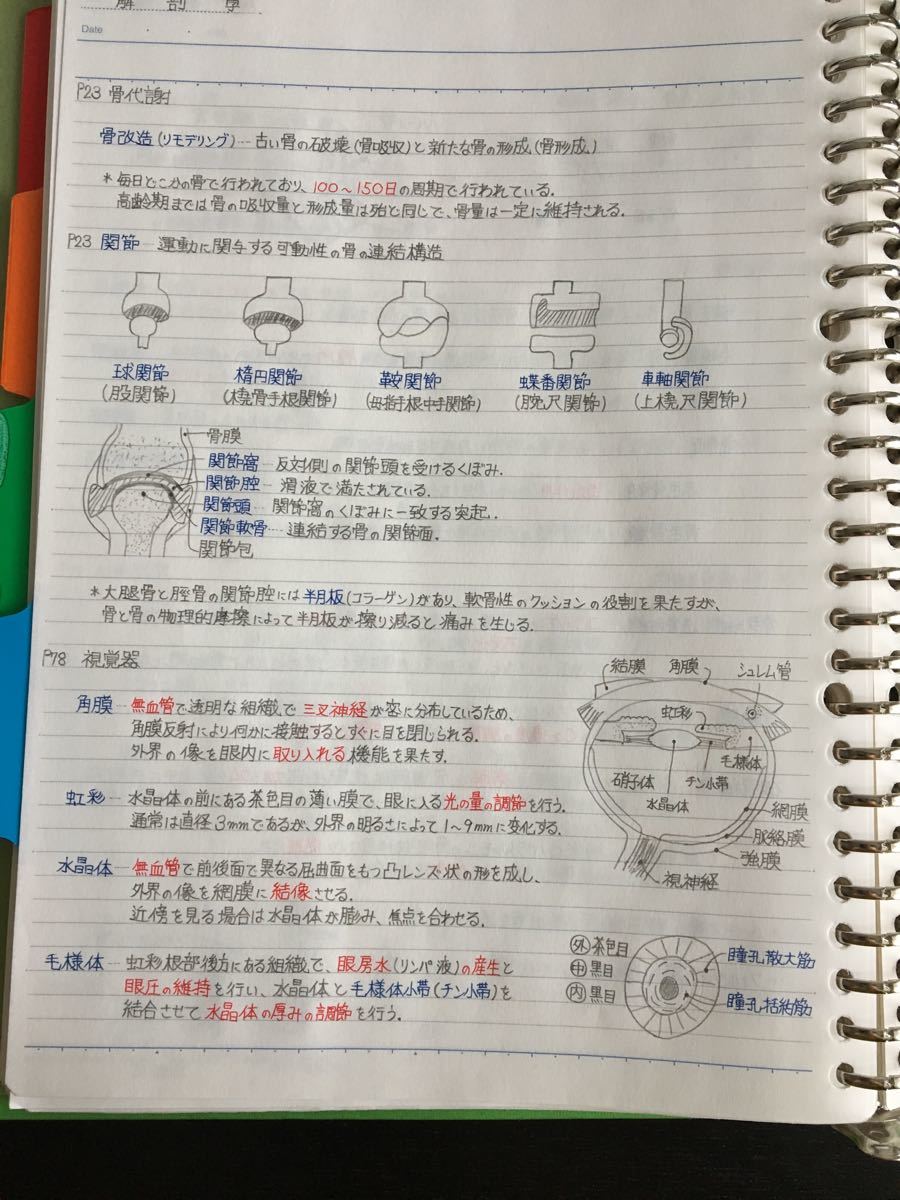 解剖学
Date
P23 骨代謝
骨改造(リモデリング)…古い骨の破壊(骨吸収)と新たな骨の形成(骨形成)
*毎日どこかの骨で行われており、100〜150日の周期で行われている.
高齢期までは骨の吸収量と形成量は殆と同じで、骨量は一定に維持される.
P23 関節―運動に関与する可動性の骨の連結構造
球関節 楕円関節 鞍関節 蝶番関節 車軸関節
(股関節) (橈骨手根関節) (母指手根中手関節) (腕尺関節) (上橈尺関節)
骨膜
関節窩―反対側の関節頭を受けるくぼみ.
関節腔―滑液で満たされている.
関節頭―関節窩のくぼみに一致する突起.
関節軟骨…連結する骨の関節面.
関節包
*大腿骨と脛骨の関節腔には半月板(コラーゲン)があり、軟骨性のクッションの役割を果たすが、
骨と骨の物理的摩擦によって半月板が擦り減ると痛みを生じる.
P78 視覚器
角膜―無血管で透明な組織で三叉神経が密に分布しているため、
角膜反射により何かに接触するとすぐに目を閉じられる.
外界の像を眼内に取り入れる機能を果たす.
虹彩―水晶体の前にある茶色目の薄い膜で、眼に入る光の量の調節を行う.
通常は直径3mmであるが、外界の明るさによって1〜9mmに変化する.
水晶体―無血管で前後面で異なる屈曲面をもつ凸レンズ状の形を成し、
外界の像を網膜に結像させる.
近傍を見る場合は水晶体が膨み、焦点を合わせる.
毛様体―虹彩根部後方にある組織で、眼房水(リンパ液)の産生と
眼圧の維持を行い、水晶体と毛様体小帯(チン小帯)を
結合させて水晶体の厚みの調節を行う.
結膜 角膜 シュレム管
虹彩
毛様体
硝子体 チン小帯
水晶体
網膜
脈絡膜
強膜
視神経
外 茶色目
中 黒目
内 黒目
瞳孔散大筋
瞳孔括約筋